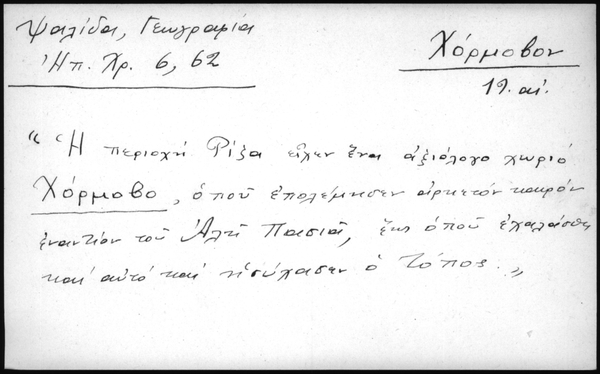 Ψαλίδα, Γεωγραφία
Ἠπ. Χρ. 6, 62
Χόρμοβον
19. αἰ.
"Ἡ περιοχή Ρίζα εἶχεν ἕνα ἀξιόλογο χωριό
Χόρμοβο, ὁποῦ ἐπολέμησεν ἀρκετόν καιρόν
ἐναντίον τοῦ Ἀλῆ Πασιᾶ, ἕως ὁποῦ ἐχαλάσθη
καί αὐτό καί ἡσύχασεν ὁ τόπος."